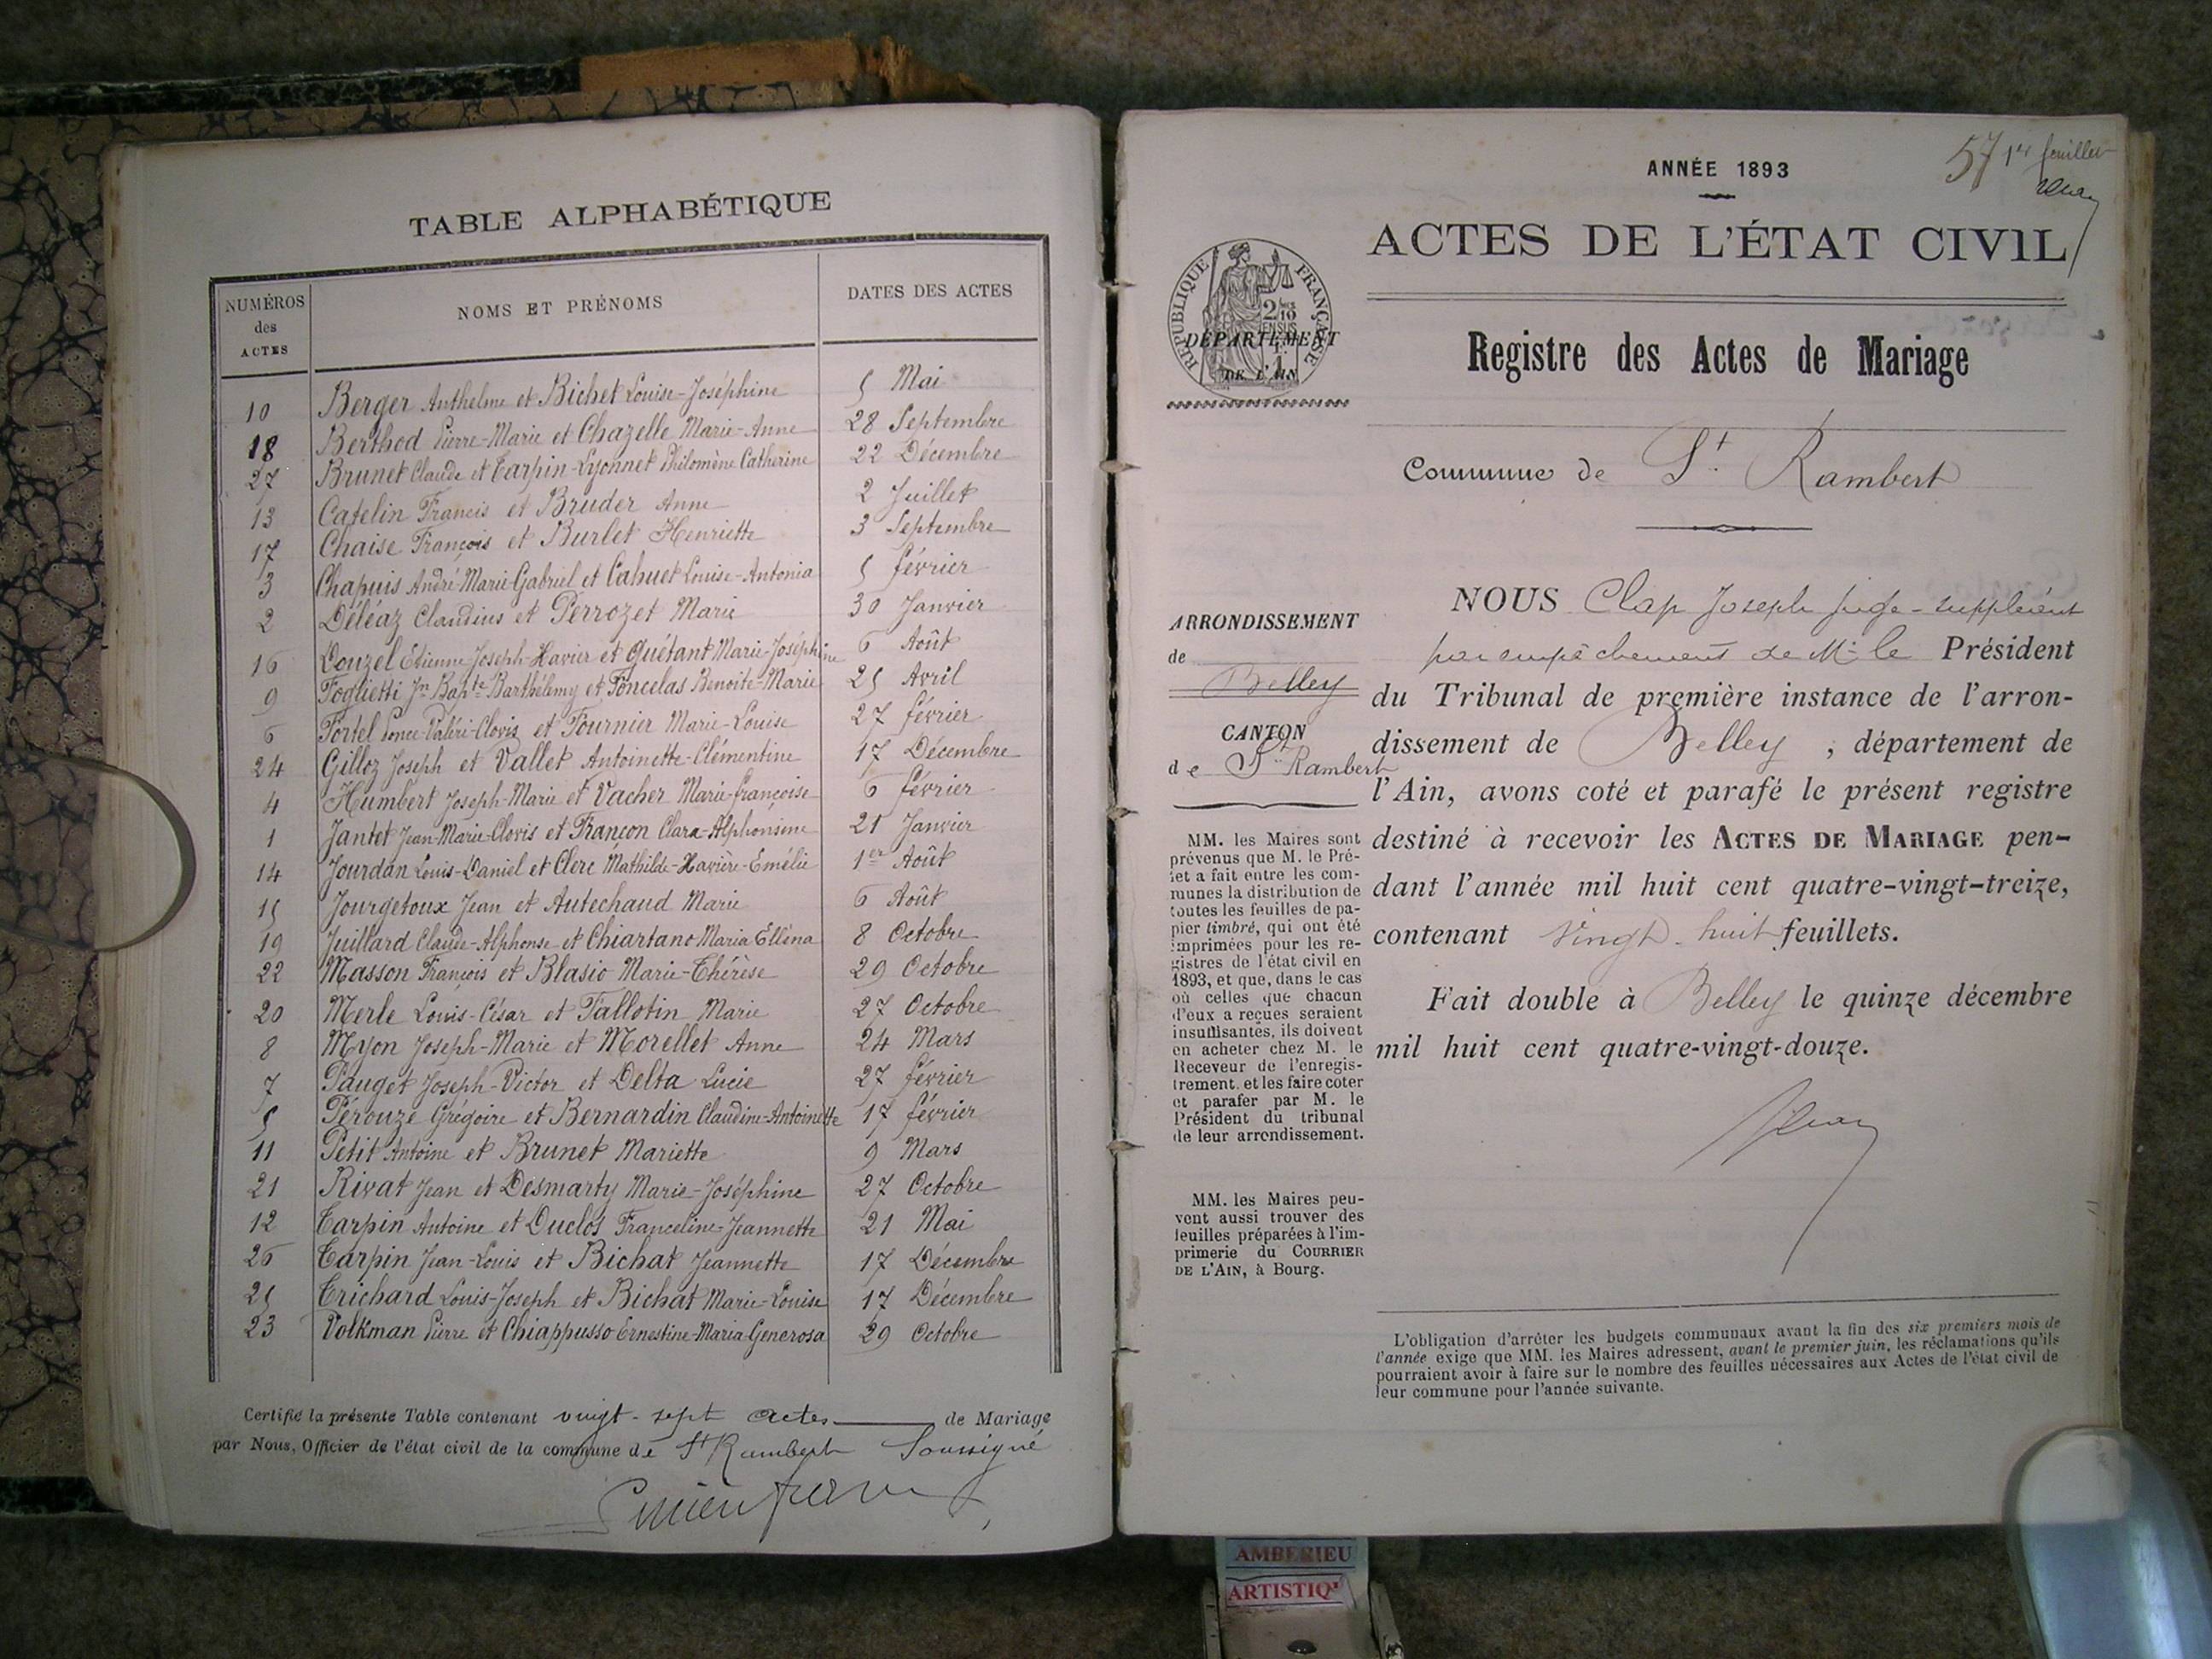 TABLE ALPHABÉTIQUE
NUMÉROS des ACTES
NOMS ET PRÉNOMS
DATES DES ACTES
10 Berger Anthelme et Bichet Louise-Joséphine 5 Mai
18 Berthod Pierre-Marie et Chazelle Marie-Anne 28 Septembre
27 Brunet Claude et Tarpin-Lyonnet Philomène Catherine 22 Décembre
13 Catelin Francis et Bruder Anne 2 Juillet
17 Chaise François et Burlet Henriette 3 Septembre
3 Chapuis André-Marie-Gabriel et Cahuet Louise-Antonia 5 février
2 Déléaz Claudius et Perrozet Marie 30 Janvier
16 Douzel Etienne-Joseph-Xavier et Guétant Marie-Joséphine 6 Août
9 Foglietti Jn Bapte Barthélemy et Foncelas Benoite-Marie 25 Avril
6 Fortel Ponce-Valéri-Clovis et Fournier Marie-Louise 27 février
24 Gilloz Joseph et Vallet Antoinette-Clémentine 17 Décembre
4 Humbert Joseph-Marie et Vacher Marie-françoise 6 février
1 Jantet Jean-Marie-Clovis et Françon Clara-Alphonsine 21 Janvier
14 Jourdan Louis-Daniel et Clerc Mathilde-Xavière-Emélie 1er Août
15 Jourgetoux Jean et Autechaud Marie 6 Août
19 Juillard Claude-Alphonse et Chiartano Maria Elléna 8 Octobre
22 Masson François et Blasio Marie-Thérèse 29 Octobre
20 Merle Louis-César et Fallotin Marie 27 Octobre
8 Myon Joseph-Marie et Morellet Anne 24 Mars
7 Pauget Joseph-Victor et Delta Lucie 27 février
5 Pérouze Grégoire et Bernardin Claudine-Antoinette 17 février
11 Petit Antoine et Brunet Mariette 9 Mars
21 Rivat Jean et Desmarty Marie-Joséphine 27 Octobre
12 Tarpin Antoine et Duclos Franceline-Jeannette 21 Mai
26 Tarpin Jean-Louis et Bichat Jeannette 17 Décembre
25 Trichard Louis-Joseph et Bichat Marie-Louise 17 Décembre
23 Volkman Pierre et Chiappusso Ernestine-Maria-Generosa 29 Octobre
Certifié la présente Table contenant vingt-sept actes de Mariage
par Nous, Officier de l'état civil de la commune de St Rambert Soussigné
57 1er feuillet
ANNÉE 1893
ACTES DE L'ÉTAT CIVIL
RÉPUBLIQUE FRANÇAISE
2/10 EN SUS
DÉPARTEMENT
DE L'AIN
Registre des Actes de Mariage
Commune de St. Rambert
ARRONDISSEMENT
de
Belley
CANTON
de St. Rambert
MM. les Maires sont
prévenus que M. le Pré-
fet a fait entre les com-
munes la distribution de
toutes les feuilles de pa-
pier timbré, qui ont été
imprimées pour les re-
gistres de l'état civil en
1893, et que, dans le cas
où celles que chacun
d'eux a reçues seraient
insuffisantes, ils doivent
en acheter chez M. le
Receveur de l'enregis-
trement, et les faire coter
et parafer par M. le
Président du tribunal
de leur arrondissement.
MM. les Maires peu-
vent aussi trouver des
feuilles préparées à l'im-
primerie du COURRIER
DE L'AIN, à Bourg.
NOUS Clap Joseph juge-suppléant
par empêchement de Mr le Président
du Tribunal de première instance de l'arron-
dissement de Belley, département de
l'Ain, avons coté et parafé le présent registre
destiné à recevoir les ACTES DE MARIAGE pen-
dant l'année mil huit cent quatre-vingt-treize,
contenant vingt-huit feuillets.
Fait double à Belley le quinze décembre
mil huit cent quatre-vingt-douze.
L'obligation d'arrêter les budgets communaux avant la fin des six premiers mois de
l'année exige que MM. les Maires adressent, avant le premier juin, les réclamations qu'ils
pourraient avoir à faire sur le nombre des feuilles nécessaires aux Actes de l'état civil de
leur commune pour l'année suivante.
AMBERIEU
ARTISTIQ'